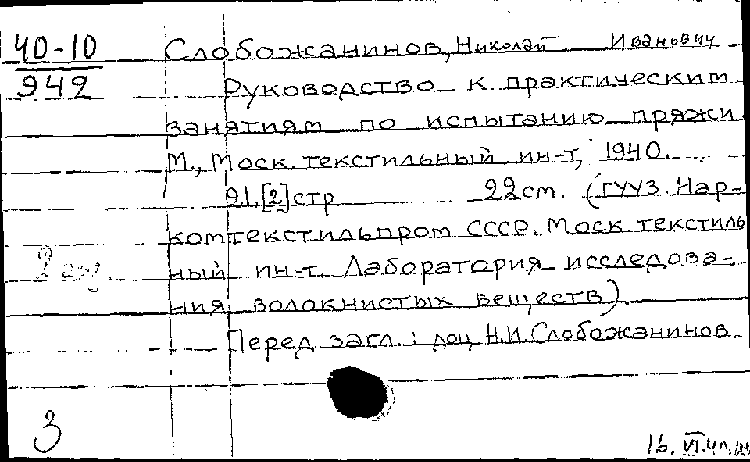 40-10
942
Слобожанинов, Николай Иванович
Руководство к практическим
занятиям по испытанию пряжи
М., Моск. текстильный ин-т, 1940.
91.[2] стр 22 см. (ГУУЗ. Нар-
комтекстильпром СССР. Моск текстиль
2 экз. ный ин-т. Лаборатория исследова-
ния волокнистых веществ)
Перед загл.: доц Н.И. Слобожанинов.
3
16. VI.